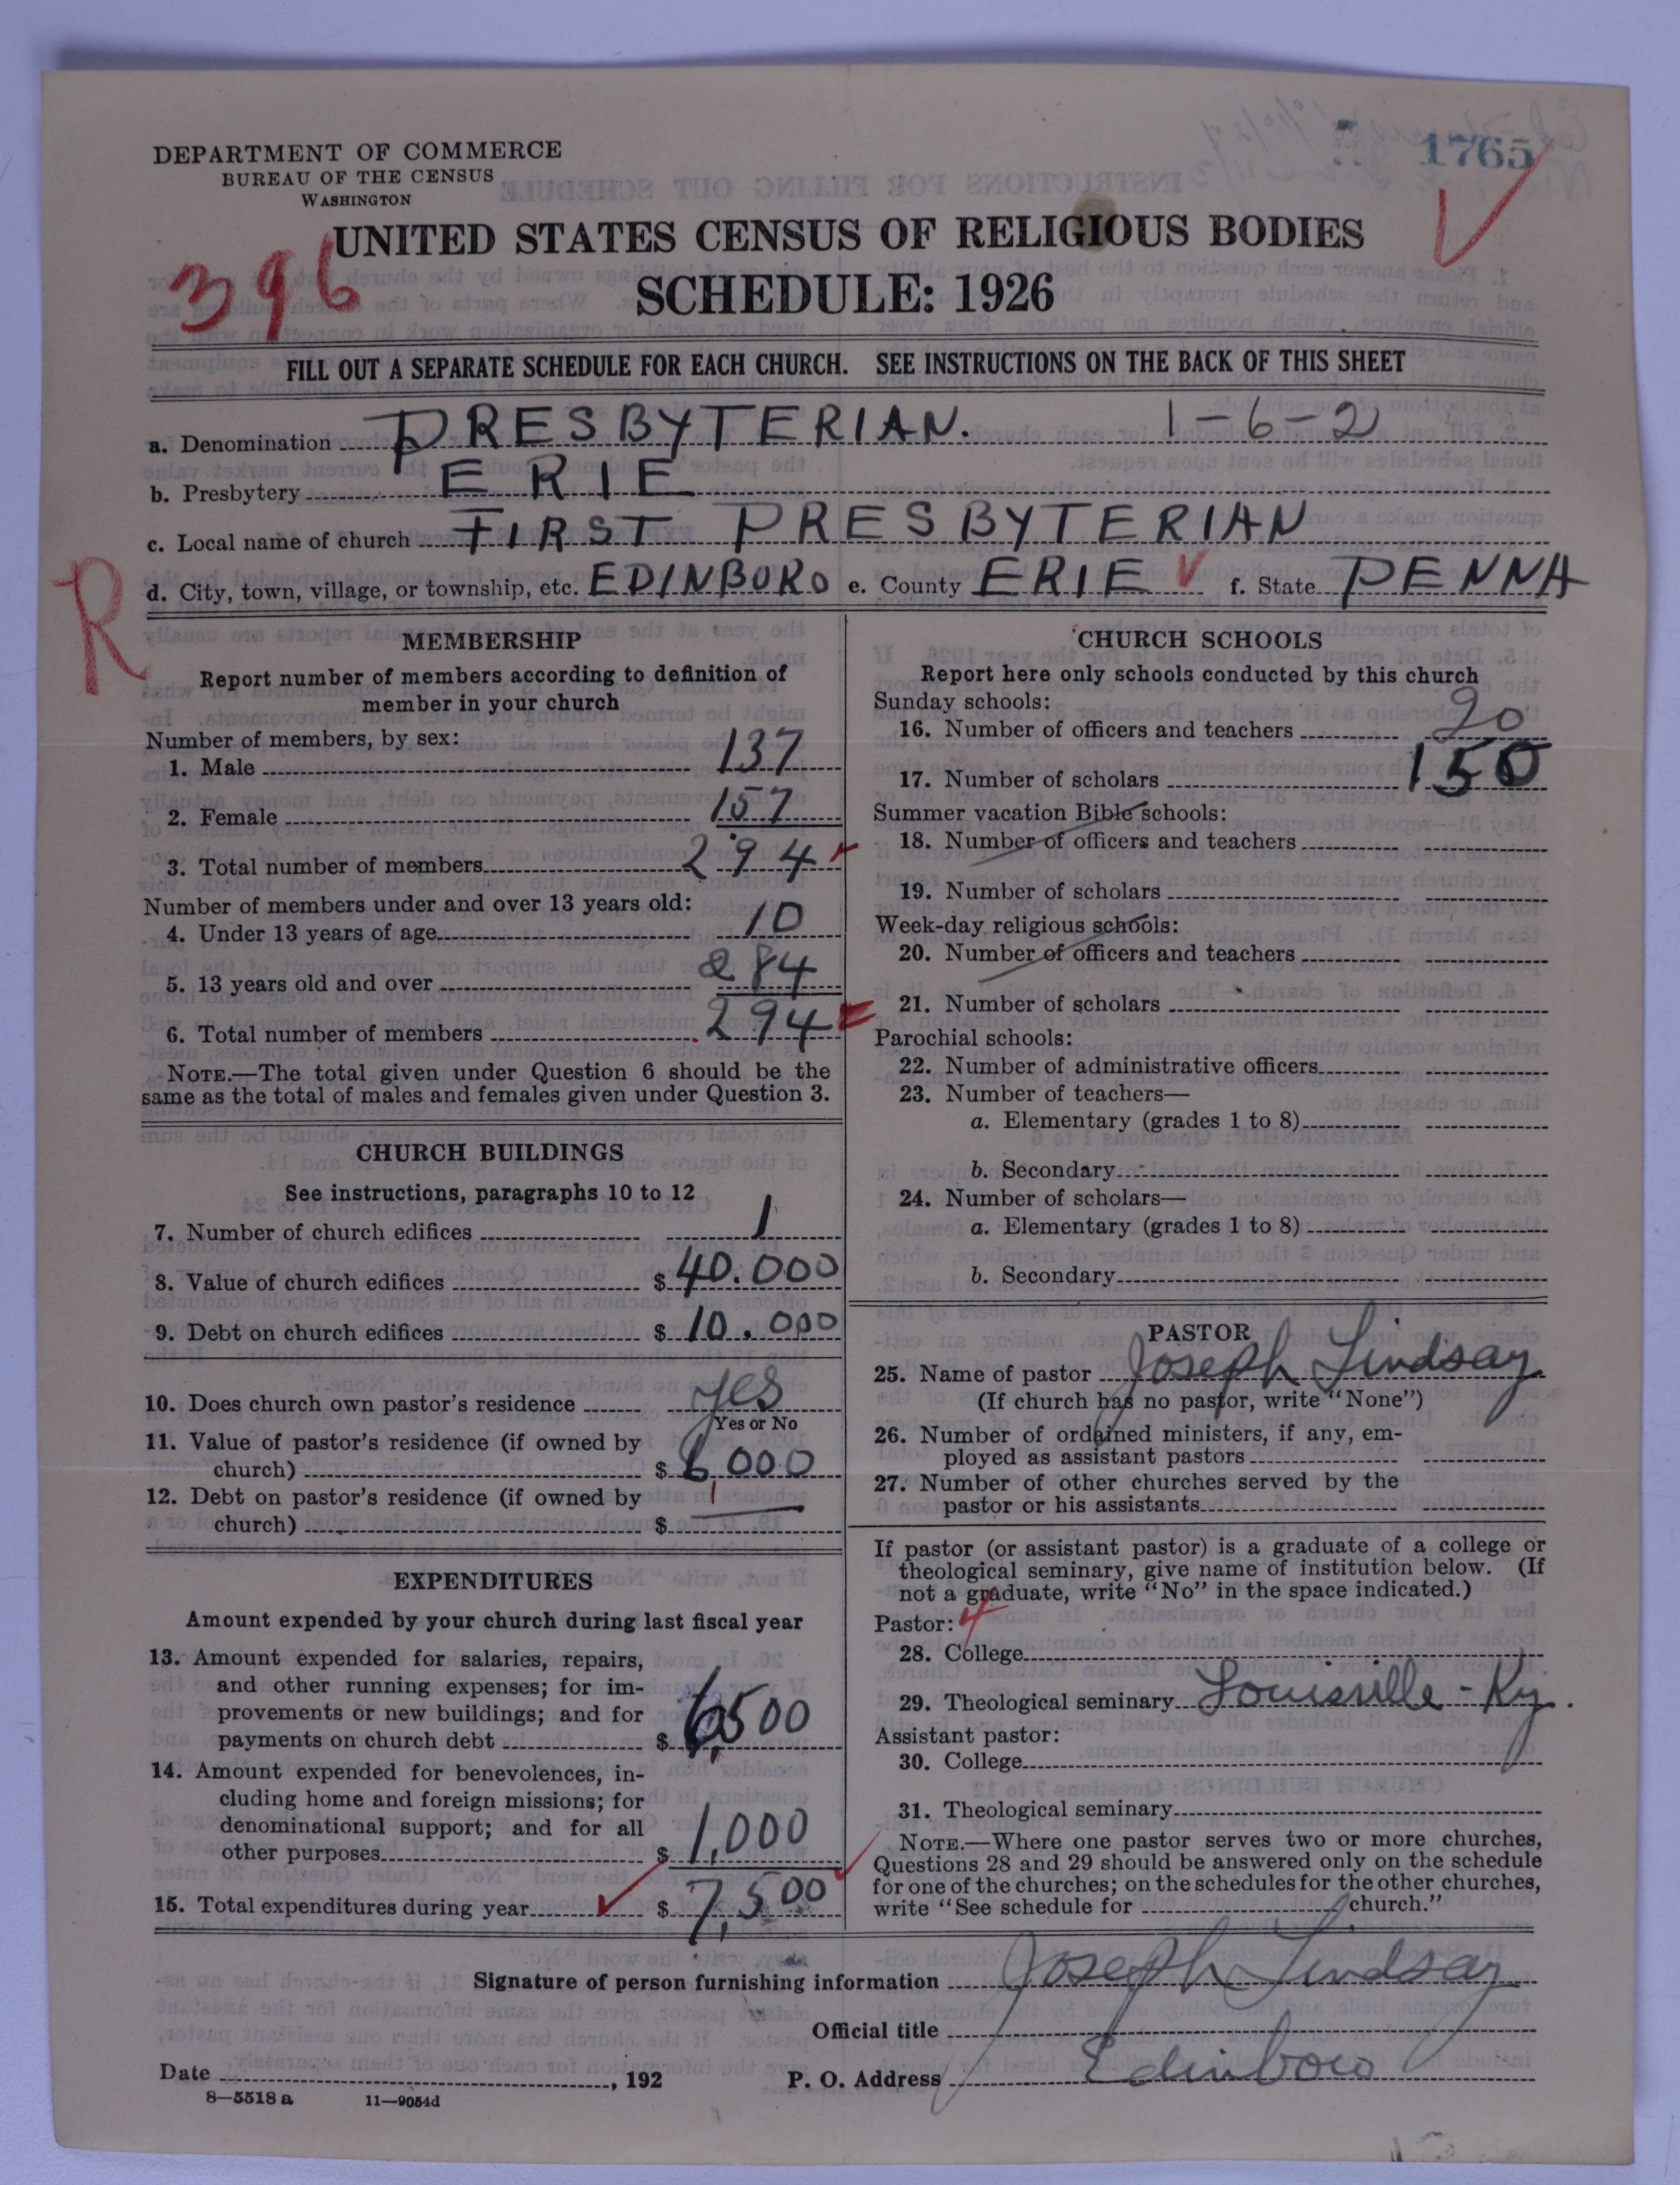 1765
DEPARTMENT OF COMMERCE
BUREAU OF THE CENSUS
WASHINGTON
UNITED STATES CENSUS OF RELIGIOUS BODIES
396
SCHEDULE: 1926
FILL OUT A SEPARATE SCHEDULE FOR EACH CHURCH. SEE INSTRUCTIONS ON THE BACK OF THIS SHEET
a. Denomination PRESBYTERIAN. 1-6-2
b. Presbytery ERIE
c. Local name of church FIRST PRESBYTERIAN
R
d. City, town, village, or township, etc. EDINBORO e. County ERIE f. State PENNA
MEMBERSHIP
Report number of members according to definition of
member in your church
Number of members, by sex:
1. Male 137
2. Female 157
3. Total number of members 294
Number of members under and over 13 years old:
4. Under 13 years of age 10
5. 13 years old and over 284
6. Total number of members 294
NOTE.—The total given under Question 6 should be the
same as the total of males and females given under Question 3.
CHURCH BUILDINGS
See instructions, paragraphs 10 to 12
7. Number of church edifices 1
8. Value of church edifices $ 40.000
9. Debt on church edifices $ 10.000
10. Does church own pastor's residence yes
Yes or No
11. Value of pastor's residence (if owned by
church) $ 6,000
12. Debt on pastor's residence (if owned by
church) $ —
EXPENDITURES
Amount expended by your church during last fiscal year
13. Amount expended for salaries, repairs,
and other running expenses; for im-
provements or new buildings; and for
payments on church debt $ 6,500
14. Amount expended for benevolences, in-
cluding home and foreign missions; for
denominational support; and for all
other purposes $ 1,000
15. Total expenditures during year $ 7,500
CHURCH SCHOOLS
Report here only schools conducted by this church
Sunday schools:
16. Number of officers and teachers 20
17. Number of scholars 150
Summer vacation Bible schools:
18. Number of officers and teachers
19. Number of scholars
Week-day religious schools:
20. Number of officers and teachers
21. Number of scholars
Parochial schools:
22. Number of administrative officers
23. Number of teachers—
a. Elementary (grades 1 to 8)
b. Secondary
24. Number of scholars—
a. Elementary (grades 1 to 8)
b. Secondary
PASTOR
25. Name of pastor Joseph Lindsay
(If church has no pastor, write "None")
26. Number of ordained ministers, if any, em-
ployed as assistant pastors
27. Number of other churches served by the
pastor or his assistants
If pastor (or assistant pastor) is a graduate of a college or
theological seminary, give name of institution below. (If
not a graduate, write "No" in the space indicated.)
Pastor: 4
28. College
29. Theological seminary Louisville - Ky.
Assistant pastor:
30. College
31. Theological seminary
NOTE.—Where one pastor serves two or more churches,
Questions 28 and 29 should be answered only on the schedule
for one of the churches; on the schedules for the other churches,
write "See schedule for church."
Signature of person furnishing information Joseph Lindsay
Official title
Date , 192 P. O. Address Edinboro
8—5518 a 11—9054d